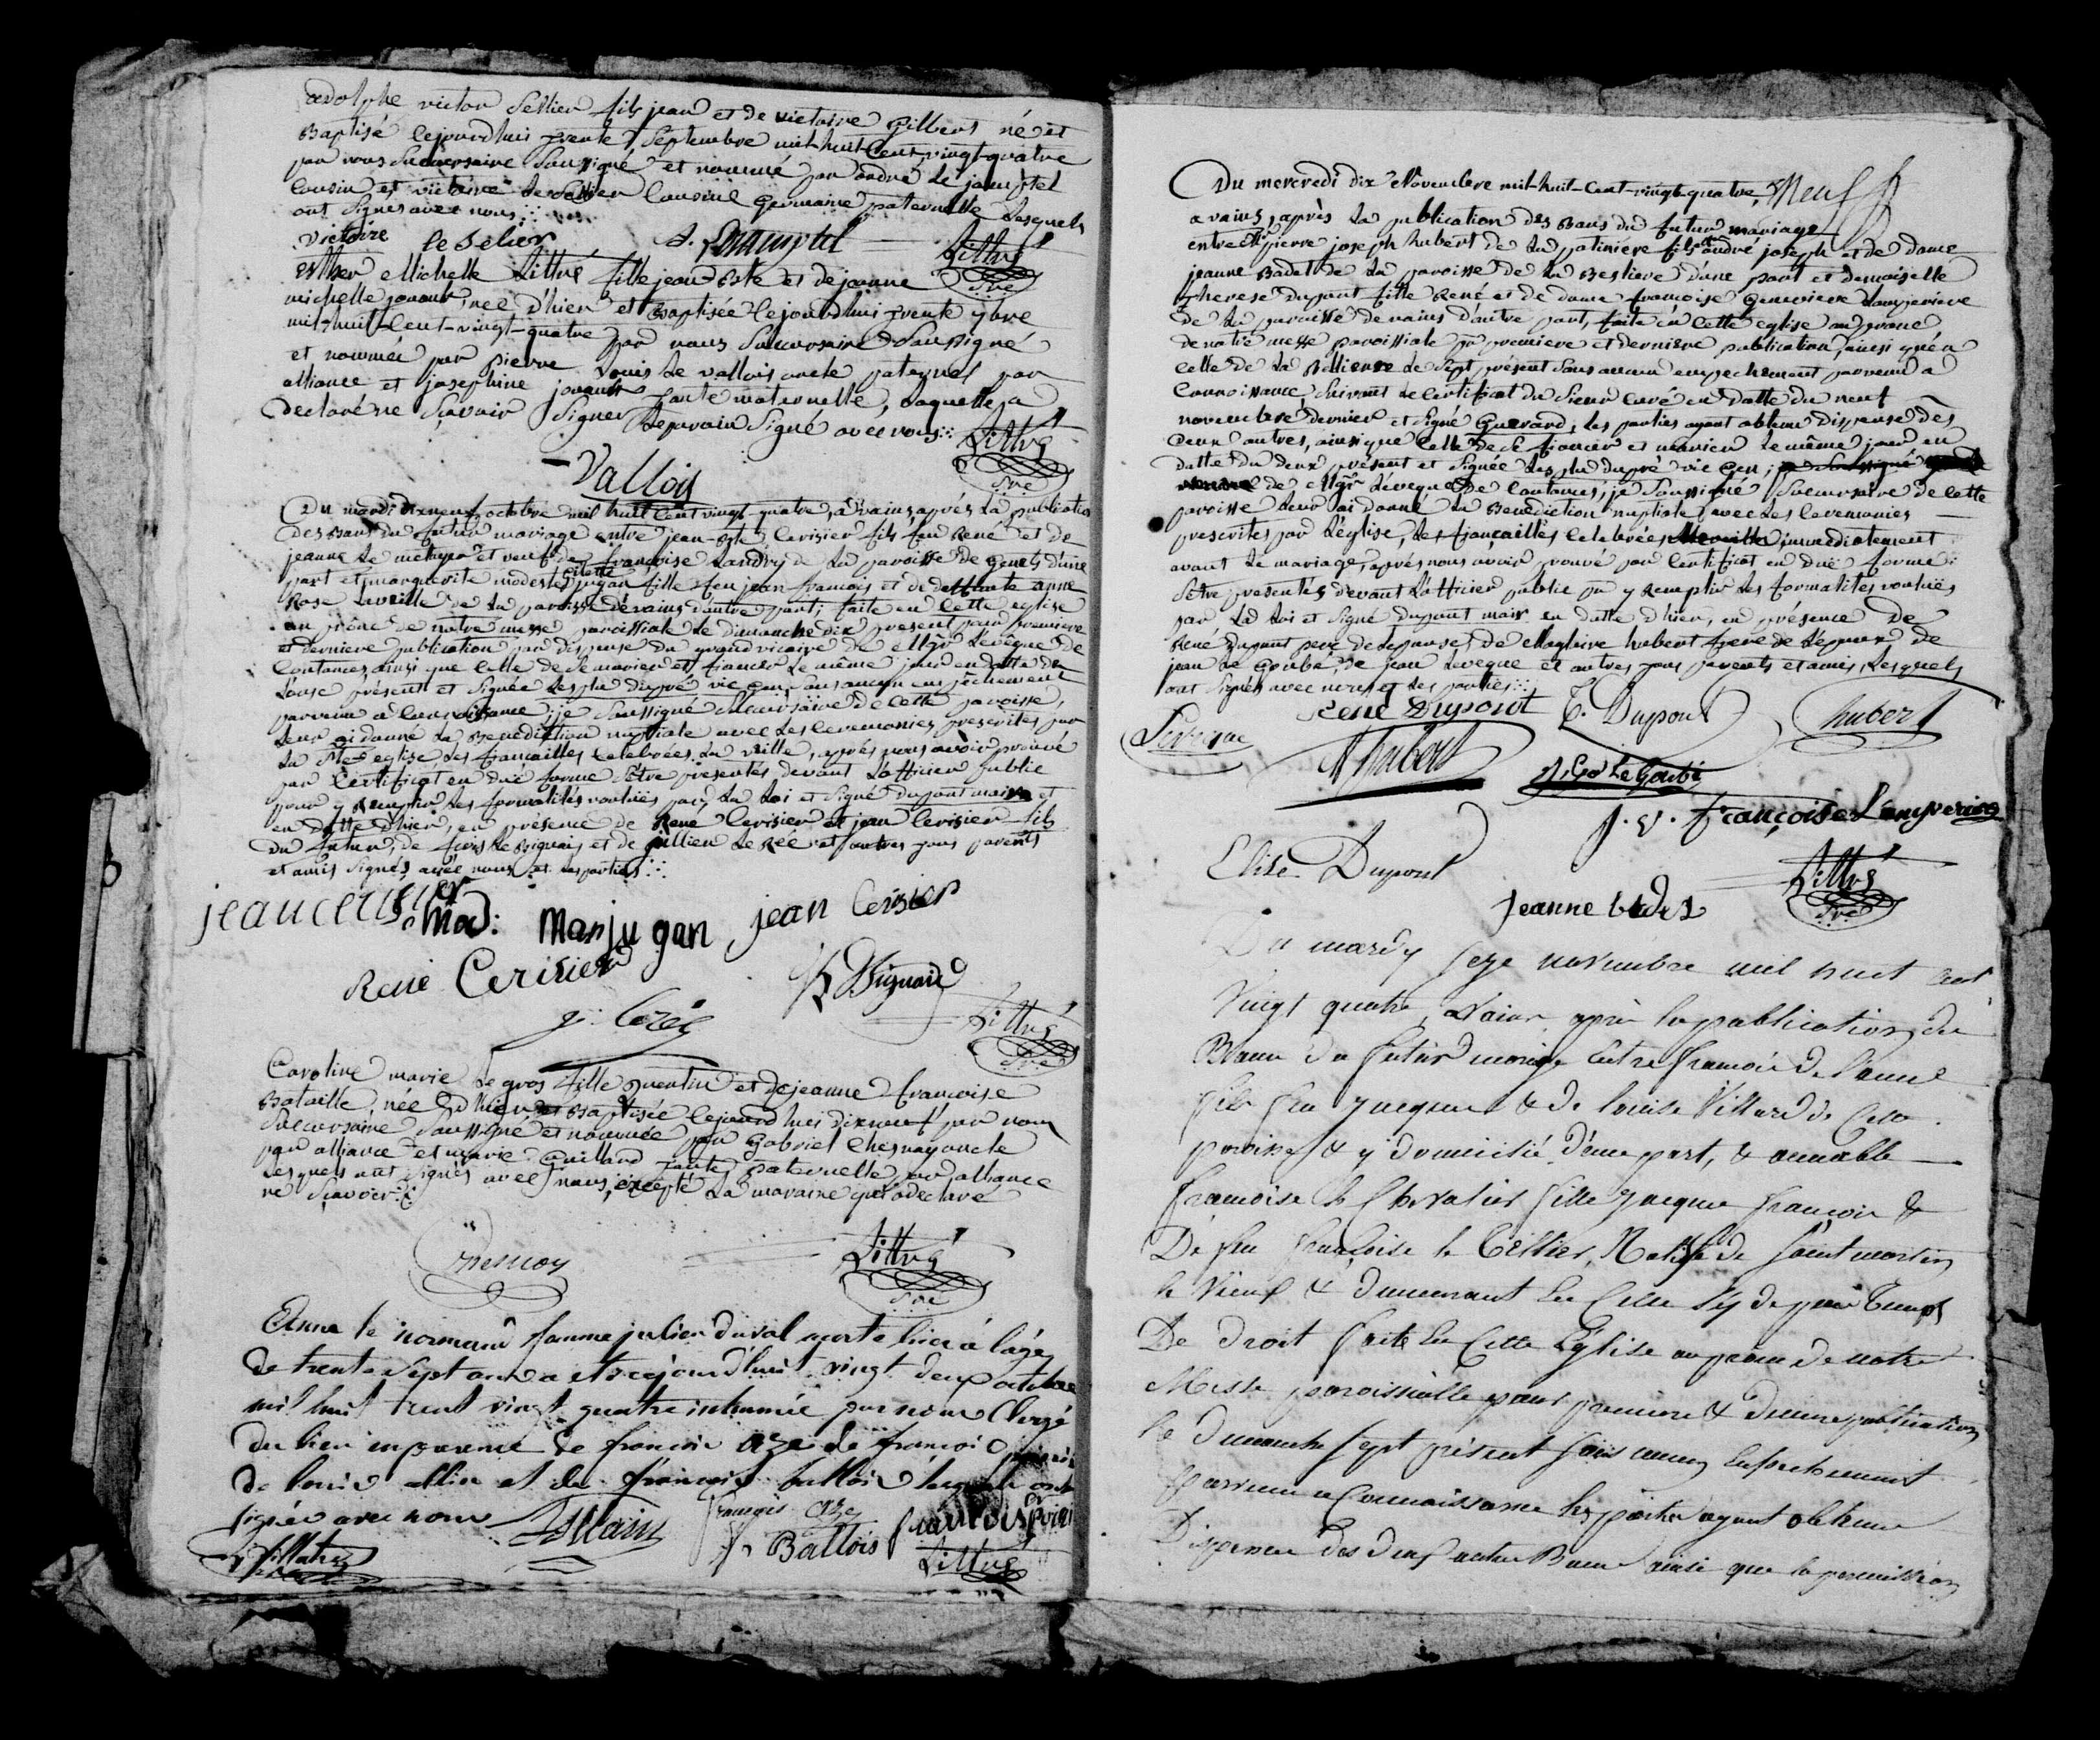 adolphe victor Sellier fils jean et de victoire Gilbert né et
Baptisé cejourdhui trente Septembre mil-huit-Cent-vingt-quatre
par nous Succursaire Soussigné et nommé par andré Le jamptel
Cousin et victoire Le Sellier Cousine Germaine paternelle Lesquels
ont Signés avec nous
victoire le Selier Littré
Sre
esther Michelle Littré fille jean Bte et de jeanne
michelle jouault, née d'hier et Baptisée cejourdhui trente 7bre
mil-huit-Cent-vingt-quatre par nous Succursaire Soussigné
et nommée par pierre Louis Le vallois oncle paternel par
alliance et josephine jouault tante maternelle, Laquelle a
declaré ne Scavoir Signer Le parain Signé avec nous
Vallois Littré
Sre
Du mardi dixneuf octobre mil huit Cent vingt-quatre, à vains après La publication
des Bans du futur mariage entre jean-Bte Cerisier fils feu René et de
jeanne Le métayer et veuf de françoise Landry de La paroisse de Genets d'une
part et marguerite modeste jugan fille feu jean francois et de deffunte anne
Rose Laveille de La paroisse de vains d'autre part; faite en Cette eglise
au prône de notre messe paroissiale Le dimanche dix present pour premiere
et derniere publication par dispense du grand vicaire de Mgr L'evêque de
Coutances, ainsi que Celle de Se marier et fiancer Le même jour en datte du
douse présent et Signée Lesplu dupré vic gen, Sans aucun empêchement
parvenu a Connoissance; je Soussigné Succursaire de Cette paroisse,
Leur ai donné La Benediction nuptiale avec Les Ceremonies prescrites par
La Ste eglise, Les fiançailles Celebrées La veille, après nous avoir prouvé
par Certificat en due forme S'être presentés devant L'officier public
pour y remplir Les formalités voulües par La Loi et Signé dupont maire
en datte d'hier, en présence de René Cerisier et jean Cerisier fils
du futur, de et de jullien Le Rée et autres tous parents
et amis Signés avec nous et Les parties
jean cerisier Mod: Marju gan jean Cerisier
René Cerisier
Littré
Sre
Caroline marie Le gros fille quentin et de jeanne françoise
Bataille, née d'hier et Baptisée Cejourd'hui dixneuf par nous
Succursaire Soussigné et nommée par Gabriel Chesnay oncle
par alliance et marie Couillard tante paternelle par alliance
Lesquels ont Signés avec nous, excepté La maraine qui a declaré
ne Scavoir
Chesnay Littré
Sre
Anne le normand famme julien duval morte hier à l'âge
de trente Sept ans a été cejourd'huit vingt deux octobre
mil huit Cent vingt quatre inhumée par nous Clergé
du lieu en presence de francois aze de francois
de louis allin et de françois ballois lesquels ont
signés avec nous Allain francois Aze francois
F. Ballois Littré
Du mercredi dix Novembre mil-huit-Cent-vingt-quatre, Neuf
a vains, après La publication des Bans du futur mariage
entre Mr pierre joseph hubert de La patiniere fils andré joseph et de dame
jeanne Badel de La paroisse de La Besliere d'une part et demoiselle
Therese dupont fille René et de dame francoise Genevieve Lamperiere
de La paroisse de vains d'autre part, faite en Cette eglise au prone
de notre messe paroissiale pr premiere et derniere publication, ainsi qu'en
celle de La Bellierre Le Sept présent Sans aucun empechement parvenu a
Connoissance Suivant Le Certificat du Sieur Curé en datte du neuf
novembre dernier et Signé Guerard, Les parties ayant obtenu Dispense des
deux autres, ainsi que Celle de Se fiancer et marier Le même jour en
datte du deux présent et Signée Lesplu dupré vic Gen;
de Mgr Leveque de Coutances, je Soussigné Succursaire de Cette
paroisse Leur ai donné La Benediction nuptiale avec Les Ceremonies
prescrites par L'église, Les fiançailles Celebrées immediatement
avant Le mariage, après nous avoir prouvé par Certificat en due forme
S'être presentés devant L'officier public pr y Remplir Les formalités voulües
par La Loi et Signé dupont maire en datte d'hier, en présence de
René dupont pere de Lepouse, de Magloire hubert frere de Lepoux, de
jean Le Goubé, de jean Leveque et autres tous parents et amis, Lesquels
ont Signés avec nous et Les parties
René Dupont T. Dupont hubert
Leveque M hubert Le Goubé
J. G. françoise Lamperiere
Elise Dupont
Jeanne badel Littré
Sre
Du mardy seze novembre mil huit cent
Vingt quatre, a Vains, après la publication des
Banns du futur mariage entre francois de launé
fils feu jacques & de louise Villard de Cette
paroisse & y domicilié d'une part, & aimable
françoise le Chevalier fille jacques francois &
De feu françoise le Tellier, Native de saint martin
le Vieux & demeurant en Cette depuis temps
De droit faite en Cette Eglise au prone de notre
Messe paroissialle pour premiere & derniere publication
le dimanche sept présent sans aucun empechement
parvenu a Connaissance les parties ayant obtenu
Dispense des deux autres Banns ainsi que la permission